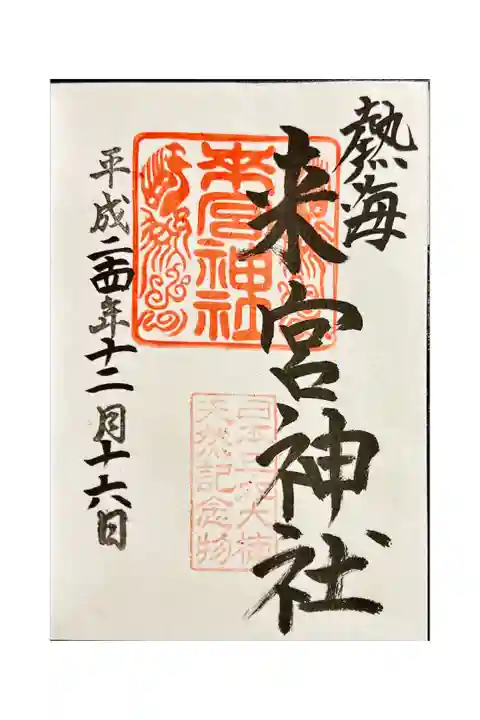 熱海
来宮神社
来宮神社
天然記念物
平成二十四年十二月十六日